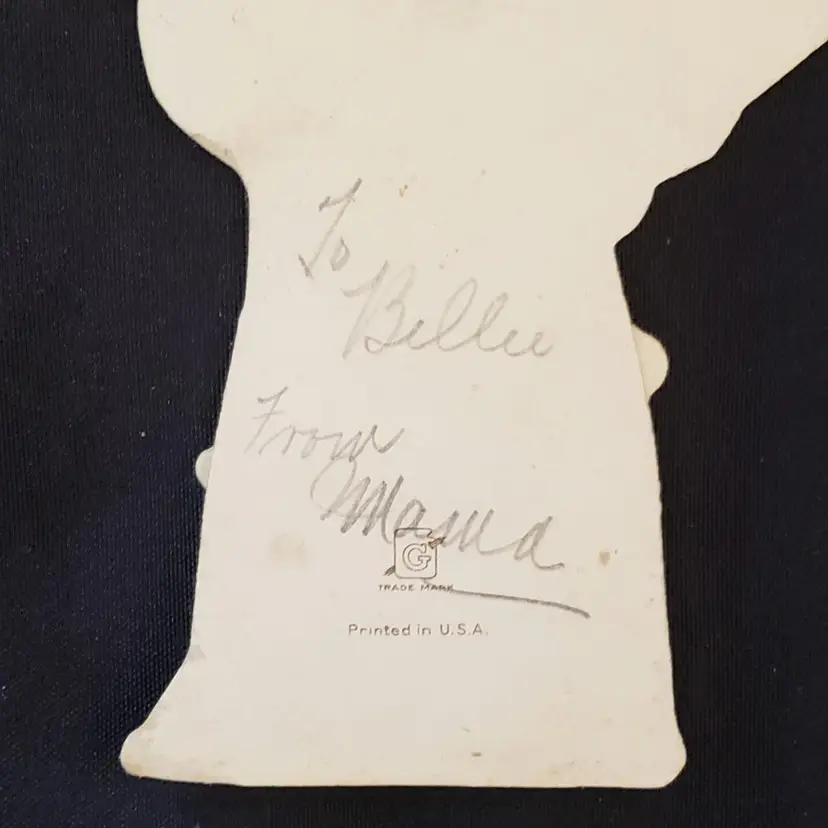 To
Billie
From
Mama
G
TRADE MARK
Printed in U.S.A.